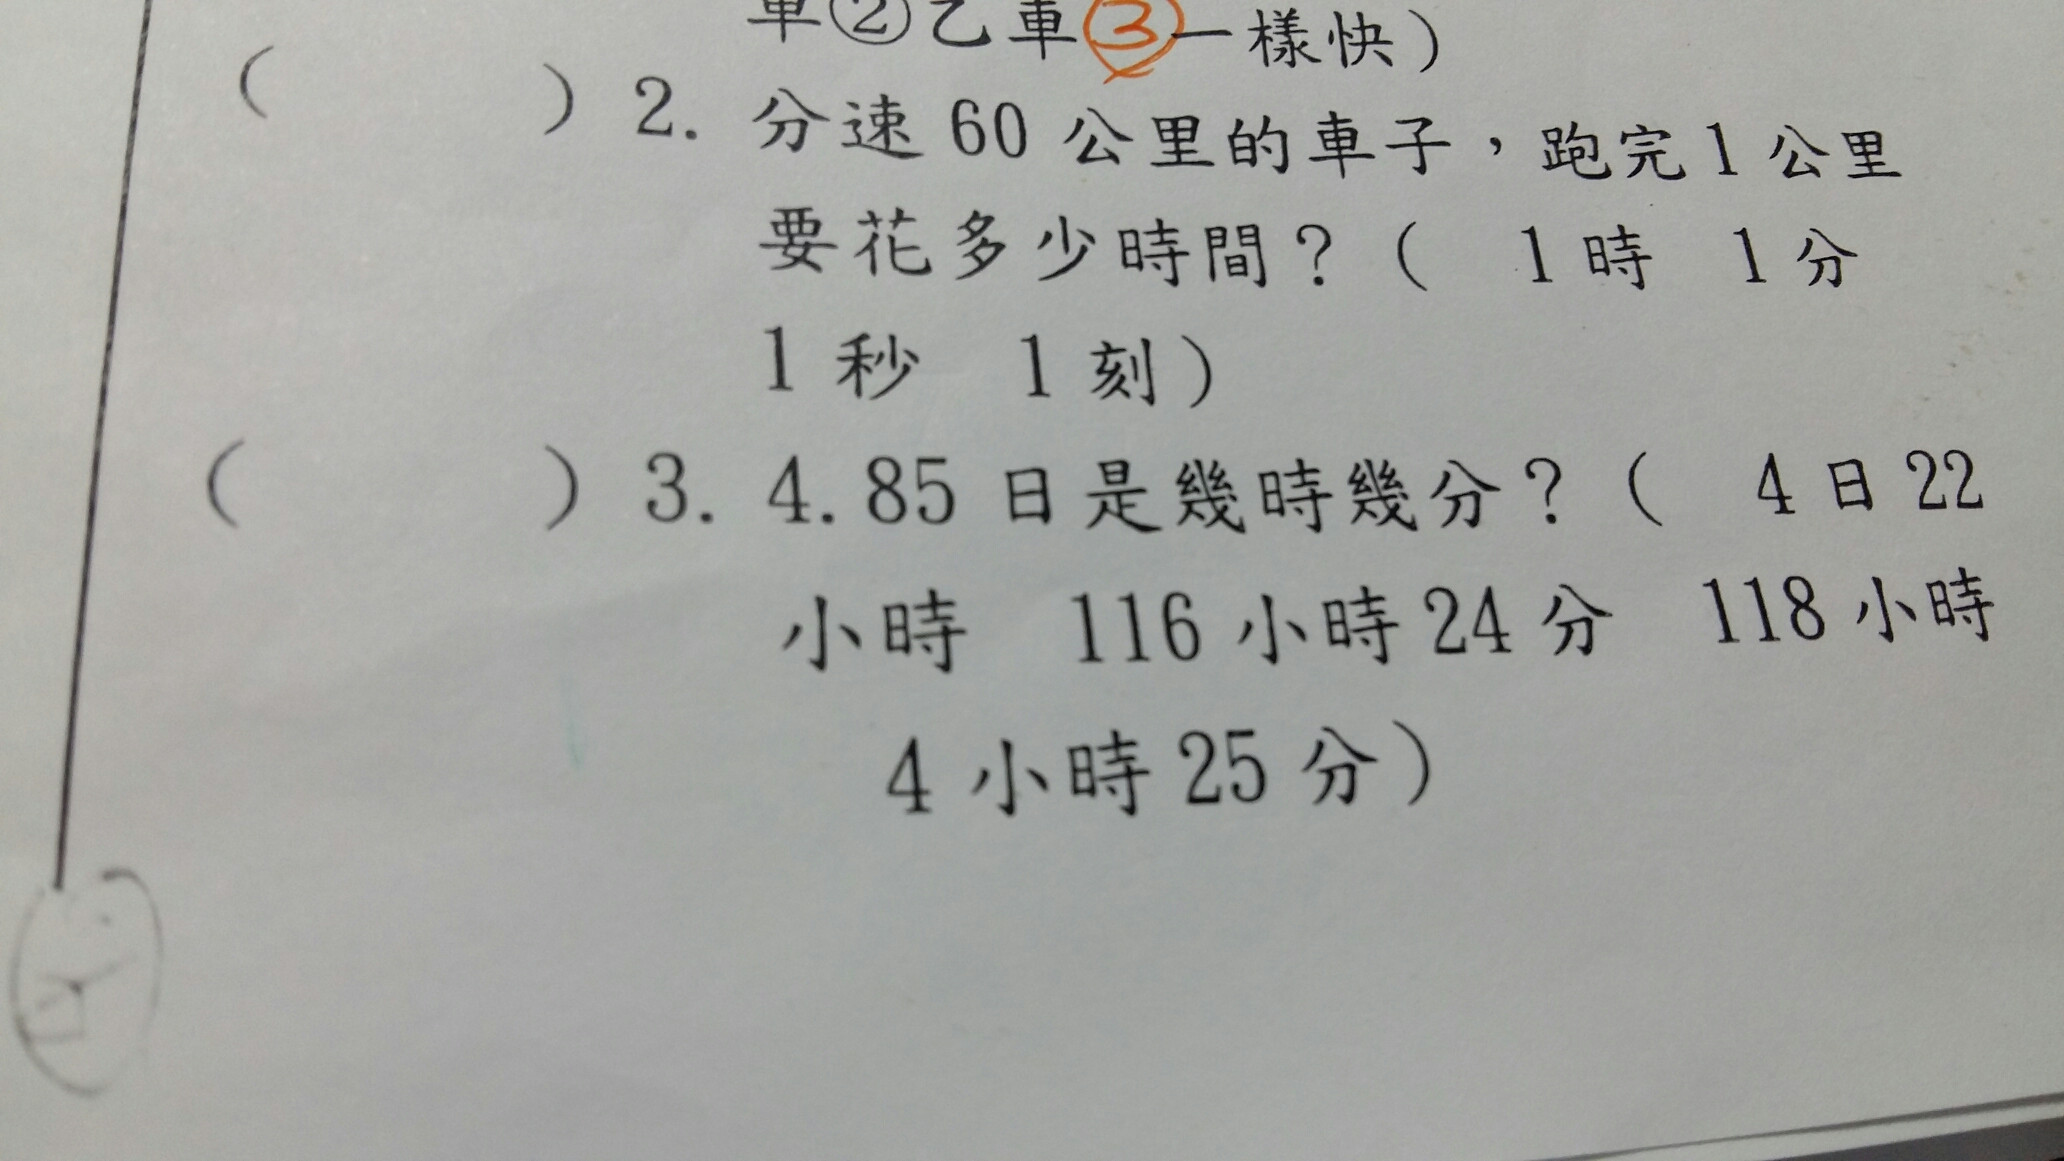 車②乙車③一樣快)
( )2. 分速 60 公里的車子,跑完1公里
要花多少時間?( 1時 1分
1秒 1刻)
( )3. 4.85 日是幾時幾分?( 4日22
小時 116小時24分 118小時
4小時25分)